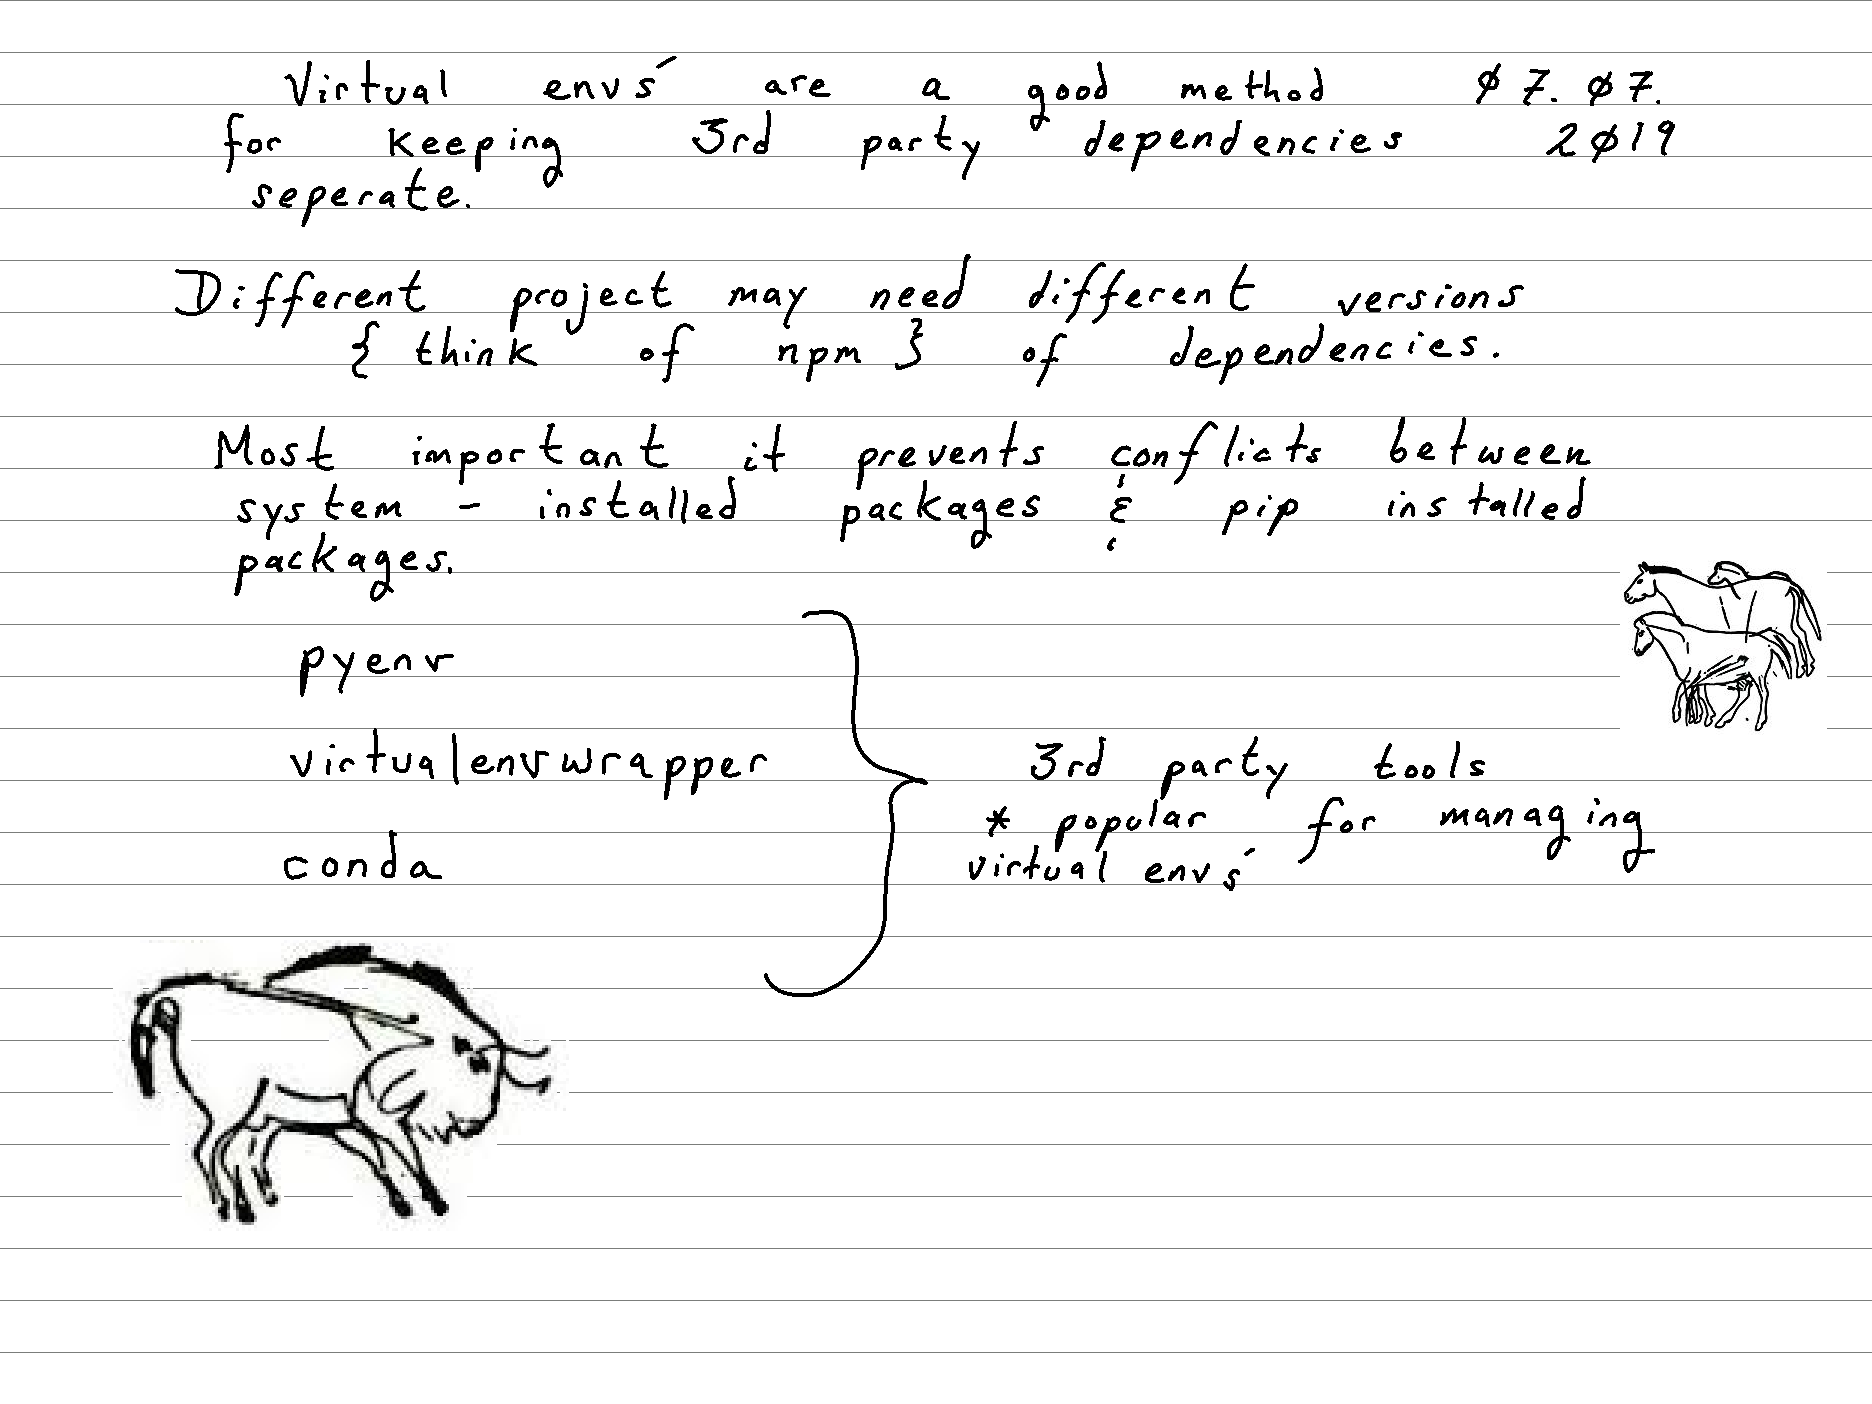 Virtual envs' are a good method 07.07.
for keeping 3rd party dependencies 2019
seperate.
Different project may need different versions
{ think of npm } of dependencies.
Most important it prevents conflicts between
system - installed packages & pip installed
packages.
pyenv
virtualenvwrapper
conda
3rd party tools
* popular for managing
virtual envs'